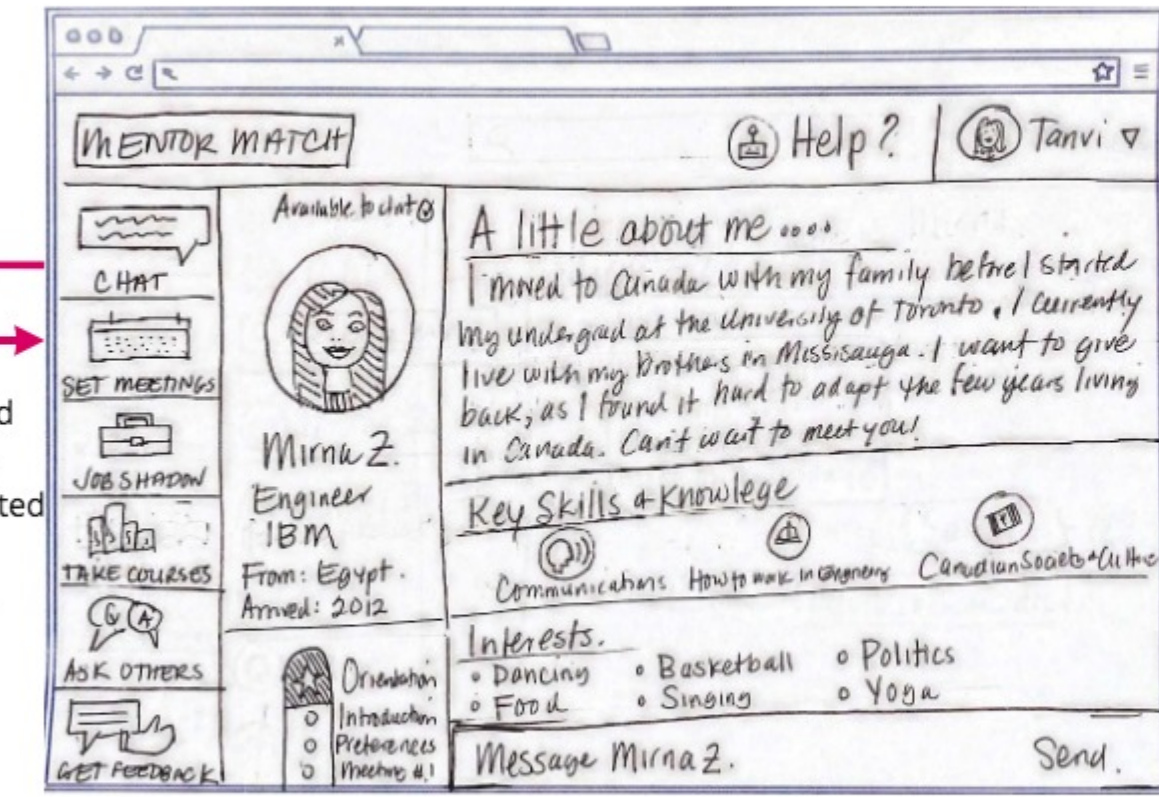 MENTOR MATCH
Help?
Tanvi
CHAT
SET MEETINGS
JOB SHADOW
TAKE COURSES
ASK OTHERS
GET FEEDBACK
d
ted
Available to chat
Mirna Z.
Engineer
IBM
From: Egypt.
Arrived: 2012
Orientation
Introduction
Preferences
Meeting #1
A little about me....
I moved to Canada with my family before I started
my undergrad at the University of Toronto. I currently
live with my brothers in Missisauga. I want to give
back, as I found it hard to adapt the few years living
in Canada. Can't wait to meet you!
Key Skills & Knowlege
Communications
How to work in Engineering
Canadian Society & Culture
Interests.
Dancing
Basketball
Politics
Food
Singing
Yoga
Message Mirna Z.
Send.
Q
A